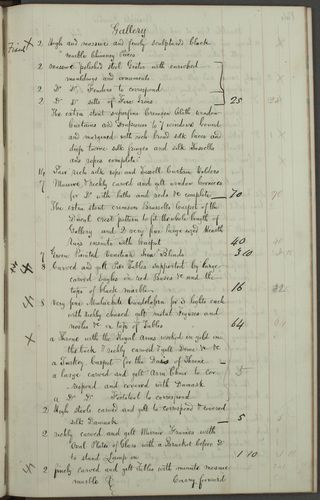 Gallery
Fixed X 2 High and massive and finely sculptured black
marble Chimney Pieces
2 massive polished Steel Grates with enriched
mouldings and ornaments
2 Do Do Fenders to correspond
2 Do Do setts of Fire Irons 25
The extra stout superfine Crimson Cloth window
Curtains and Draperies to 7 windows bound
and margined with rich broad silk laces and
deep twine silk fringes and silk Tassells
and ropes complete
14 Pair rich silk rope and Tassell Curtain Holders
7 Massive & richly carved and gilt window Cornices
for Do with laths and rods &c complete 70
The extra stout crimson Brussells Carpet of the
Ducal crest pattern to fit the whole length of
Gallery and 2 very fine large sized Hearth
Rugs ensuite with 40
7 Green Painted Venetian Blinds 3 10
8 Carved and gilt Pier Tables supported by large
carved Eagles on red Bases &c and the
tops of black marble 16
8 Very fine Malachite Candelabra for 3 lights each
with richly chased gilt metal figures and
&c on tops of Tables 64
X a Throne with the Royal Arms worked in gold on
the back & richly carved & gilt Dome &c &c
a Turkey Carpet for the Dais of Throne
a large carved and gilt Arm Chair to cor-
respond and covered with Damask
a Do Do Footstool to correspond
2 High stools carved and gilt to correspond & covered
silk Damask 5
2 richly carved and gilt Mirror Frames with
Oval Plates of Glass with a Bracket before Do
to stand Lamp on 1 10
2 finely carved and gilt Tables with massive
marble Carry forward